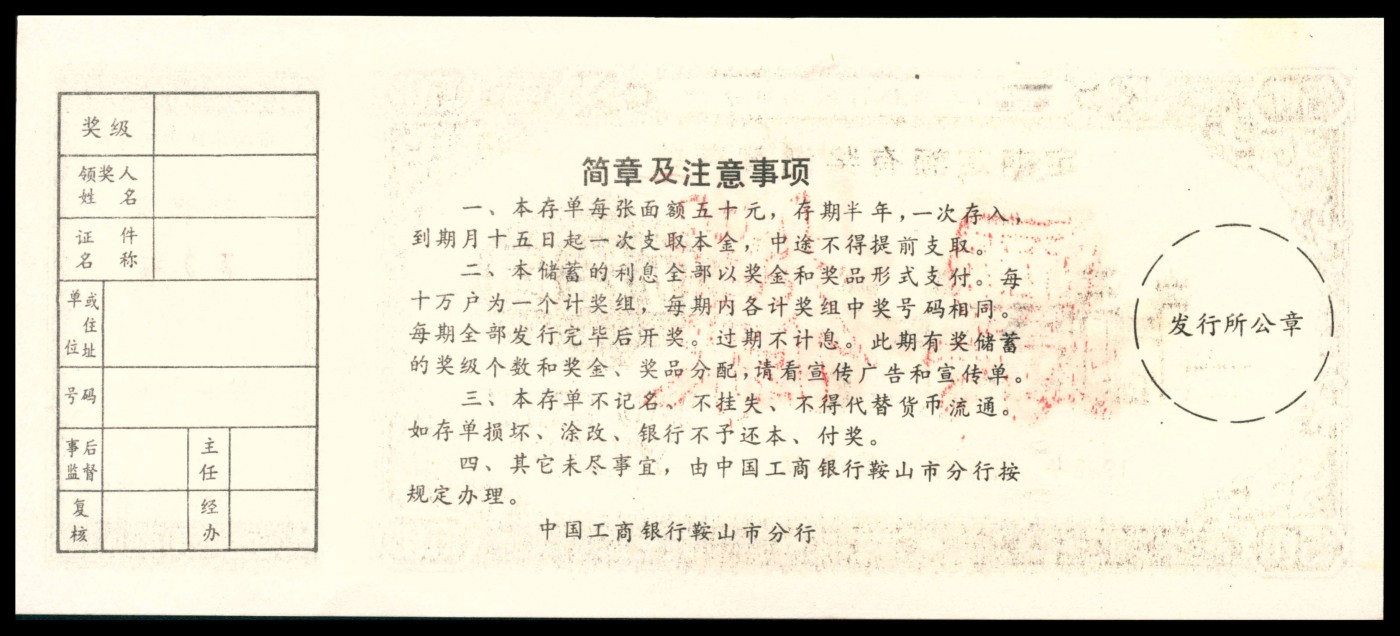 奖级
领奖人
姓名
证件
名称
单或
住
位址
号码
事后
监督
主
任
复
核
经
办
简章及注意事项
一、本存单每张面额五十元，存期半年，一次存入，
到期月十五日起一次支取本金，中途不得提前支取。
二、本储蓄的利息全部以奖金和奖品形式支付。每
十万户为一个计奖组，每期内各计奖组中奖号码相同。
每期全部发行完毕后开奖。过期不计息。此期有奖储蓄
的奖级个数和奖金、奖品分配，请看宣传广告和宣传单。
三、本存单不记名、不挂失、不得代替货币流通。
如存单损坏、涂改、银行不予还本、付奖。
四、其它未尽事宜，由中国工商银行鞍山市分行按
规定办理。
中国工商银行鞍山市分行
发行所公章